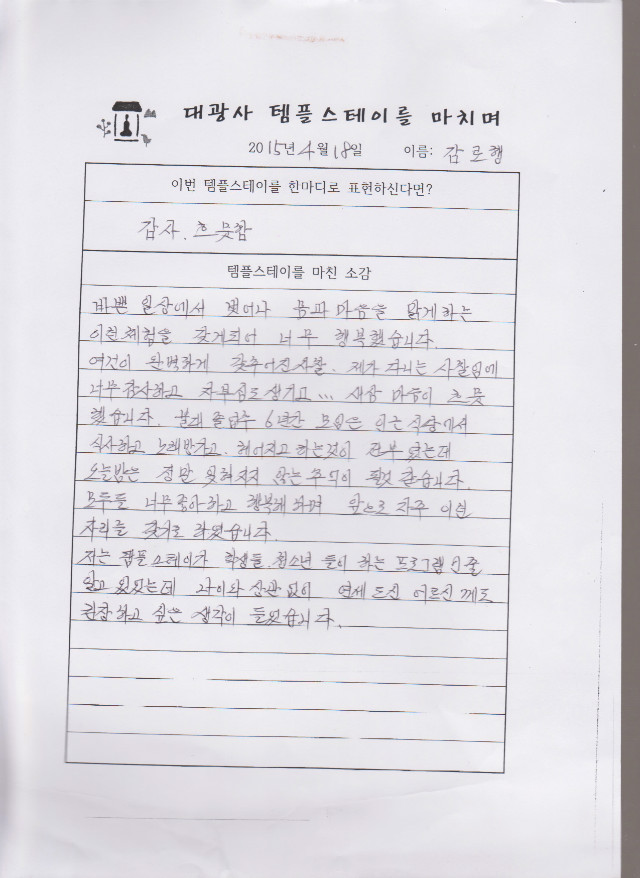 대광사 템플스테이를 마치며
2015년 4월 18일 이름: 감로행
이번 템플스테이를 한마디로 표현하신다면?
감사. 흐뭇함
템플스테이를 마친 소감
바쁜 일상에서 벗어나 몸과 마음을 맑게하는
이런체험을 갖게되어 너무 행복했습니다.
여건이 완벽하게 갖추어진사찰. 제가 다니는 사찰임에
너무감사하고 자부심도 생기고 ... 새삼 마음이 흐뭇
했습니다. 불대 졸업후 6년간 모임은 인근 식당에서
식사하고 노래방가고. 헤어지고 하는것이 전부 였는데
오늘밤은 정말 잊혀지지 않는 추억이 될것 같습니다.
모두들 너무좋아하고 행복해 하며 앞으로 자주 이런
자리를 갖기로 하였습니다.
저는 템플스테이가 학생들. 청소년 들이 하는 프로그램 인줄
알고 있었는데 나이와 상관 없이 연세 드신 어르신 께도
권장하고 싶은 생각이 들었습니다.